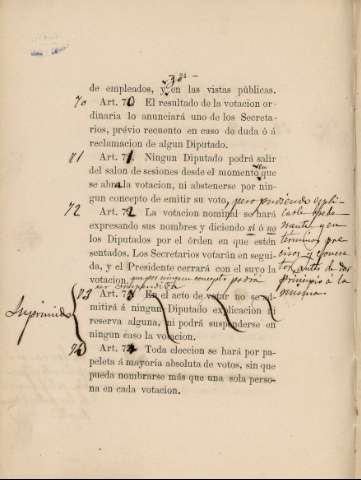 de empleados, y en las vistas públicas.
70 Art. 70 El resultado de la votacion or-
dinaria lo anunciará uno de los Secreta-
rios, prévio recuento en caso de duda ó á
reclamacion de algun Diputado.
71 Art. 71. Ningun Diputado podrá salir
del salon de sesiones desde el momento que
se abra la votacion, ni abstenerse por nin-
gun concepto de emitir su voto, pero pudiendo expli-
72 Art. 72 La votacion nominal se hará
expresando sus nombres y diciendo sí ó no
los Diputados por el órden en que estén
sentados. Los Secretarios votarán en segui-
da, y el Presidente cerrará con el suyo la
votacion, que por ningun concepto podrá
ser suspendida
73 Art. 73 En el acto de votar no se ad-
mitirá á ningun Diputado explicacion ni
reserva alguna, ni podrá suspenderse en
ningun caso la votacion.
Suprimido
73 Art. 74 Toda eleccion se hará por pa-
peleta á mayoría absoluta de votos, sin que
pueda nombrarse más que una sola perso-
na en cada votacion.
términos pre-
antes de dar
principio á la
misma.